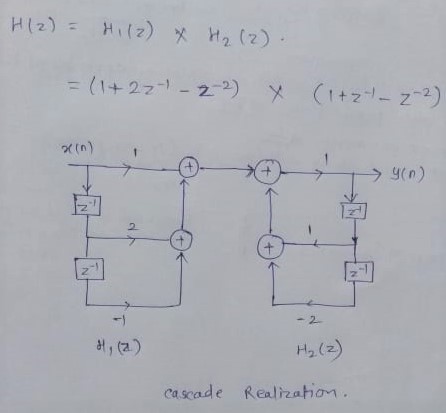 H(z) = H₁(z) × H₂(z).
= (1+2z⁻¹ - z⁻²) × (1+z⁻¹ - z⁻²)
x(n) 1 + + 1 y(n)
z⁻¹ z⁻¹
2 + + 1
z⁻¹ z⁻¹
-1 -2
H₁(z) H₂(z)
cascade Realization.